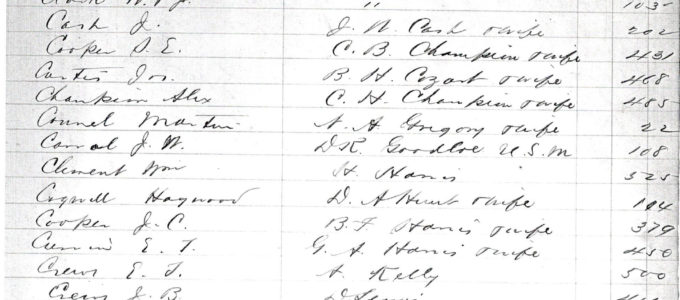 Cash J. J. W. Cash & wife 202
Cooper S. E. C. B. Champion & wife 431
Curtis Jos. B. H. Cozart & wife 468
Champion Alex C. H. Champion & wife 485
Connel Martin N. A. Gregory & wife 22
Carrol J. W. D. R. Goodloe U.S.M 108
Clement Wm H. Harris 325
Haywood D. A Hunt & wife
Cooper J. C. B. F. Harris & wife 379
E. T. G. A. Harris & wife 450
Crews E. T. A. Kelly 500
Crews J. B.